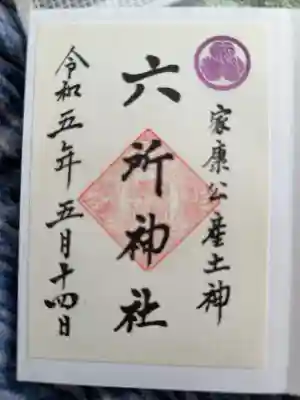 家康公産土神
六所神社
令和五年五月十四日